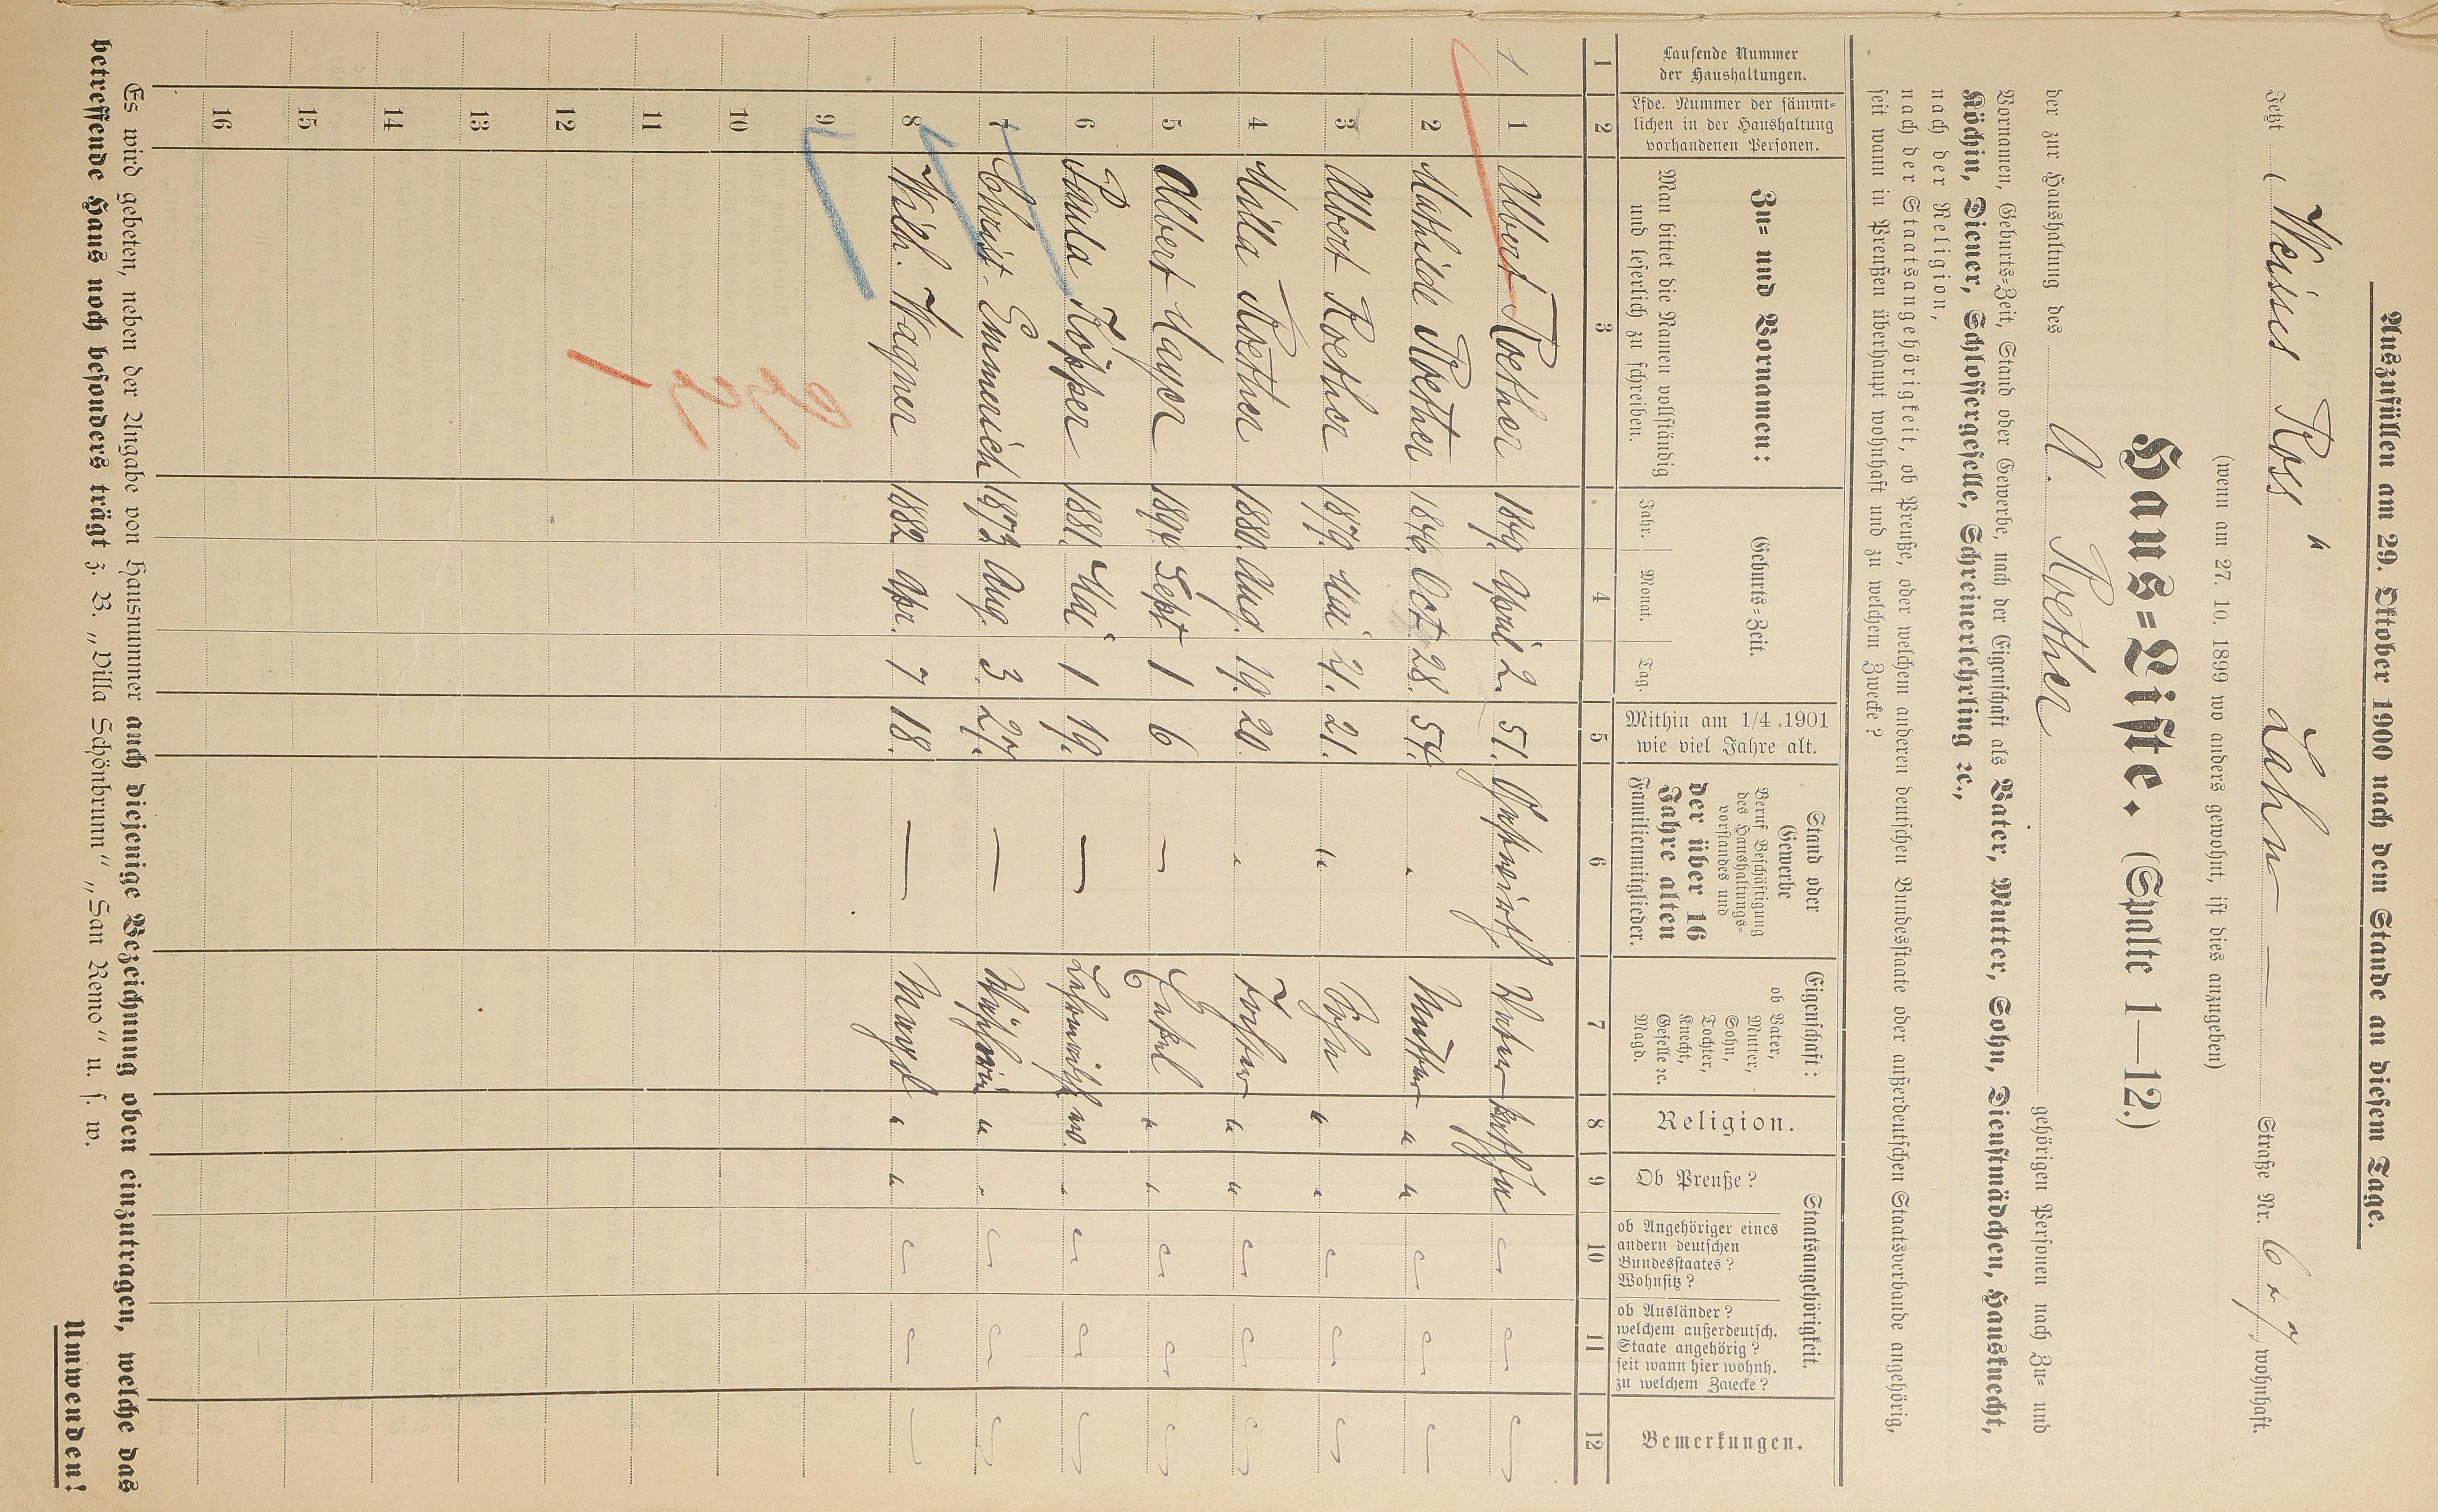 Auszufüllen am 29. Oktober 1900 nach dem Stande an diesem Tage.
Jetzt „Weisses Ross“ Lahn — Straße Nr. 6 & 7 wohnhaft.
(wenn am 27. 10. 1899 wo anders gewohnt, ist dies anzugeben)
Haus-Liste. (Spalte 1—12.)
der zur Haushaltung des A. Roether gehörigen Personen nach Zu- und
Vornamen, Geburts-Zeit, Stand oder Gewerbe, nach der Eigenschaft als Vater, Mutter, Sohn, Dienstmädchen, Hausknecht,
Köchin, Diener, Schlossergeselle, Schreinerlehrling ꝛc.,
nach der Religion,
nach der Staatsangehörigkeit, ob Preuße, oder welchem anderen deutschen Bundesstaate oder außerdeutschen Staatsverbande angehörig,
seit wann in Preußen überhaupt wohnhaft und zu welchem Zwecke?
Laufende Nummer der Haushaltungen.
Lfde. Nummer der sämmtlichen in der Haushaltung vorhandenen Personen.
Zu- und Vornamen:
Man bittet die Namen vollständig und leserlich zu schreiben.
Geburts-Zeit.
Jahr. Monat. Tag.
Mithin am 1/4. 1901 wie viel Jahre alt.
Stand oder Gewerbe
Beruf Beschäftigung des Haushaltungs-vorstandes und
der über 16 Jahre alten Familienmitglieder.
Eigenschaft:
ob Vater, Mutter, Sohn, Tochter, Knecht, Geselle ꝛc. Magd.
Religion.
Staatsangehörigkeit.
Ob Preuße?
ob Angehöriger eines andern deutschen Bundesstaates? Wohnsitz?
ob Ausländer? welchem außerdeutsch. Staate angehörig? seit wann hier wohnh. zu welchem Zwecke?
Bemerkungen.
1 2 3 4 5 6 7 8 9 10 11 12
1 1 Albert Roether 1849. April 2. 51. Gastwirth Vater kathol.
2 Mathilde Roether 1846. Oct. 28. 54. " Mutter " "
3 Albert Roether 1879. Mai 21. 21. " Sohn " "
4 Milla Roether 1880. Aug. 19. 20. " Tochter " "
5 Albert Mayer 1894 Sept 1 6 — Enkel " "
6 Paula Köpper 1881. Mai 1 19. — ev. "
7 Christ. Emmerich 1873 Aug. 3. 27. — " "
8 Wilh. Wagner 1882 Apr. 7 18. — Magd " "
9
10
11
12
13
14
15
16
Es wird gebeten, neben der Angabe von Hausnummer auch diejenige Bezeichnung oben einzutragen, welche das
betreffende Haus noch besonders trägt z. B. „Villa Schönbrunn“ „San Remo“ u. s. w.
Umwenden!